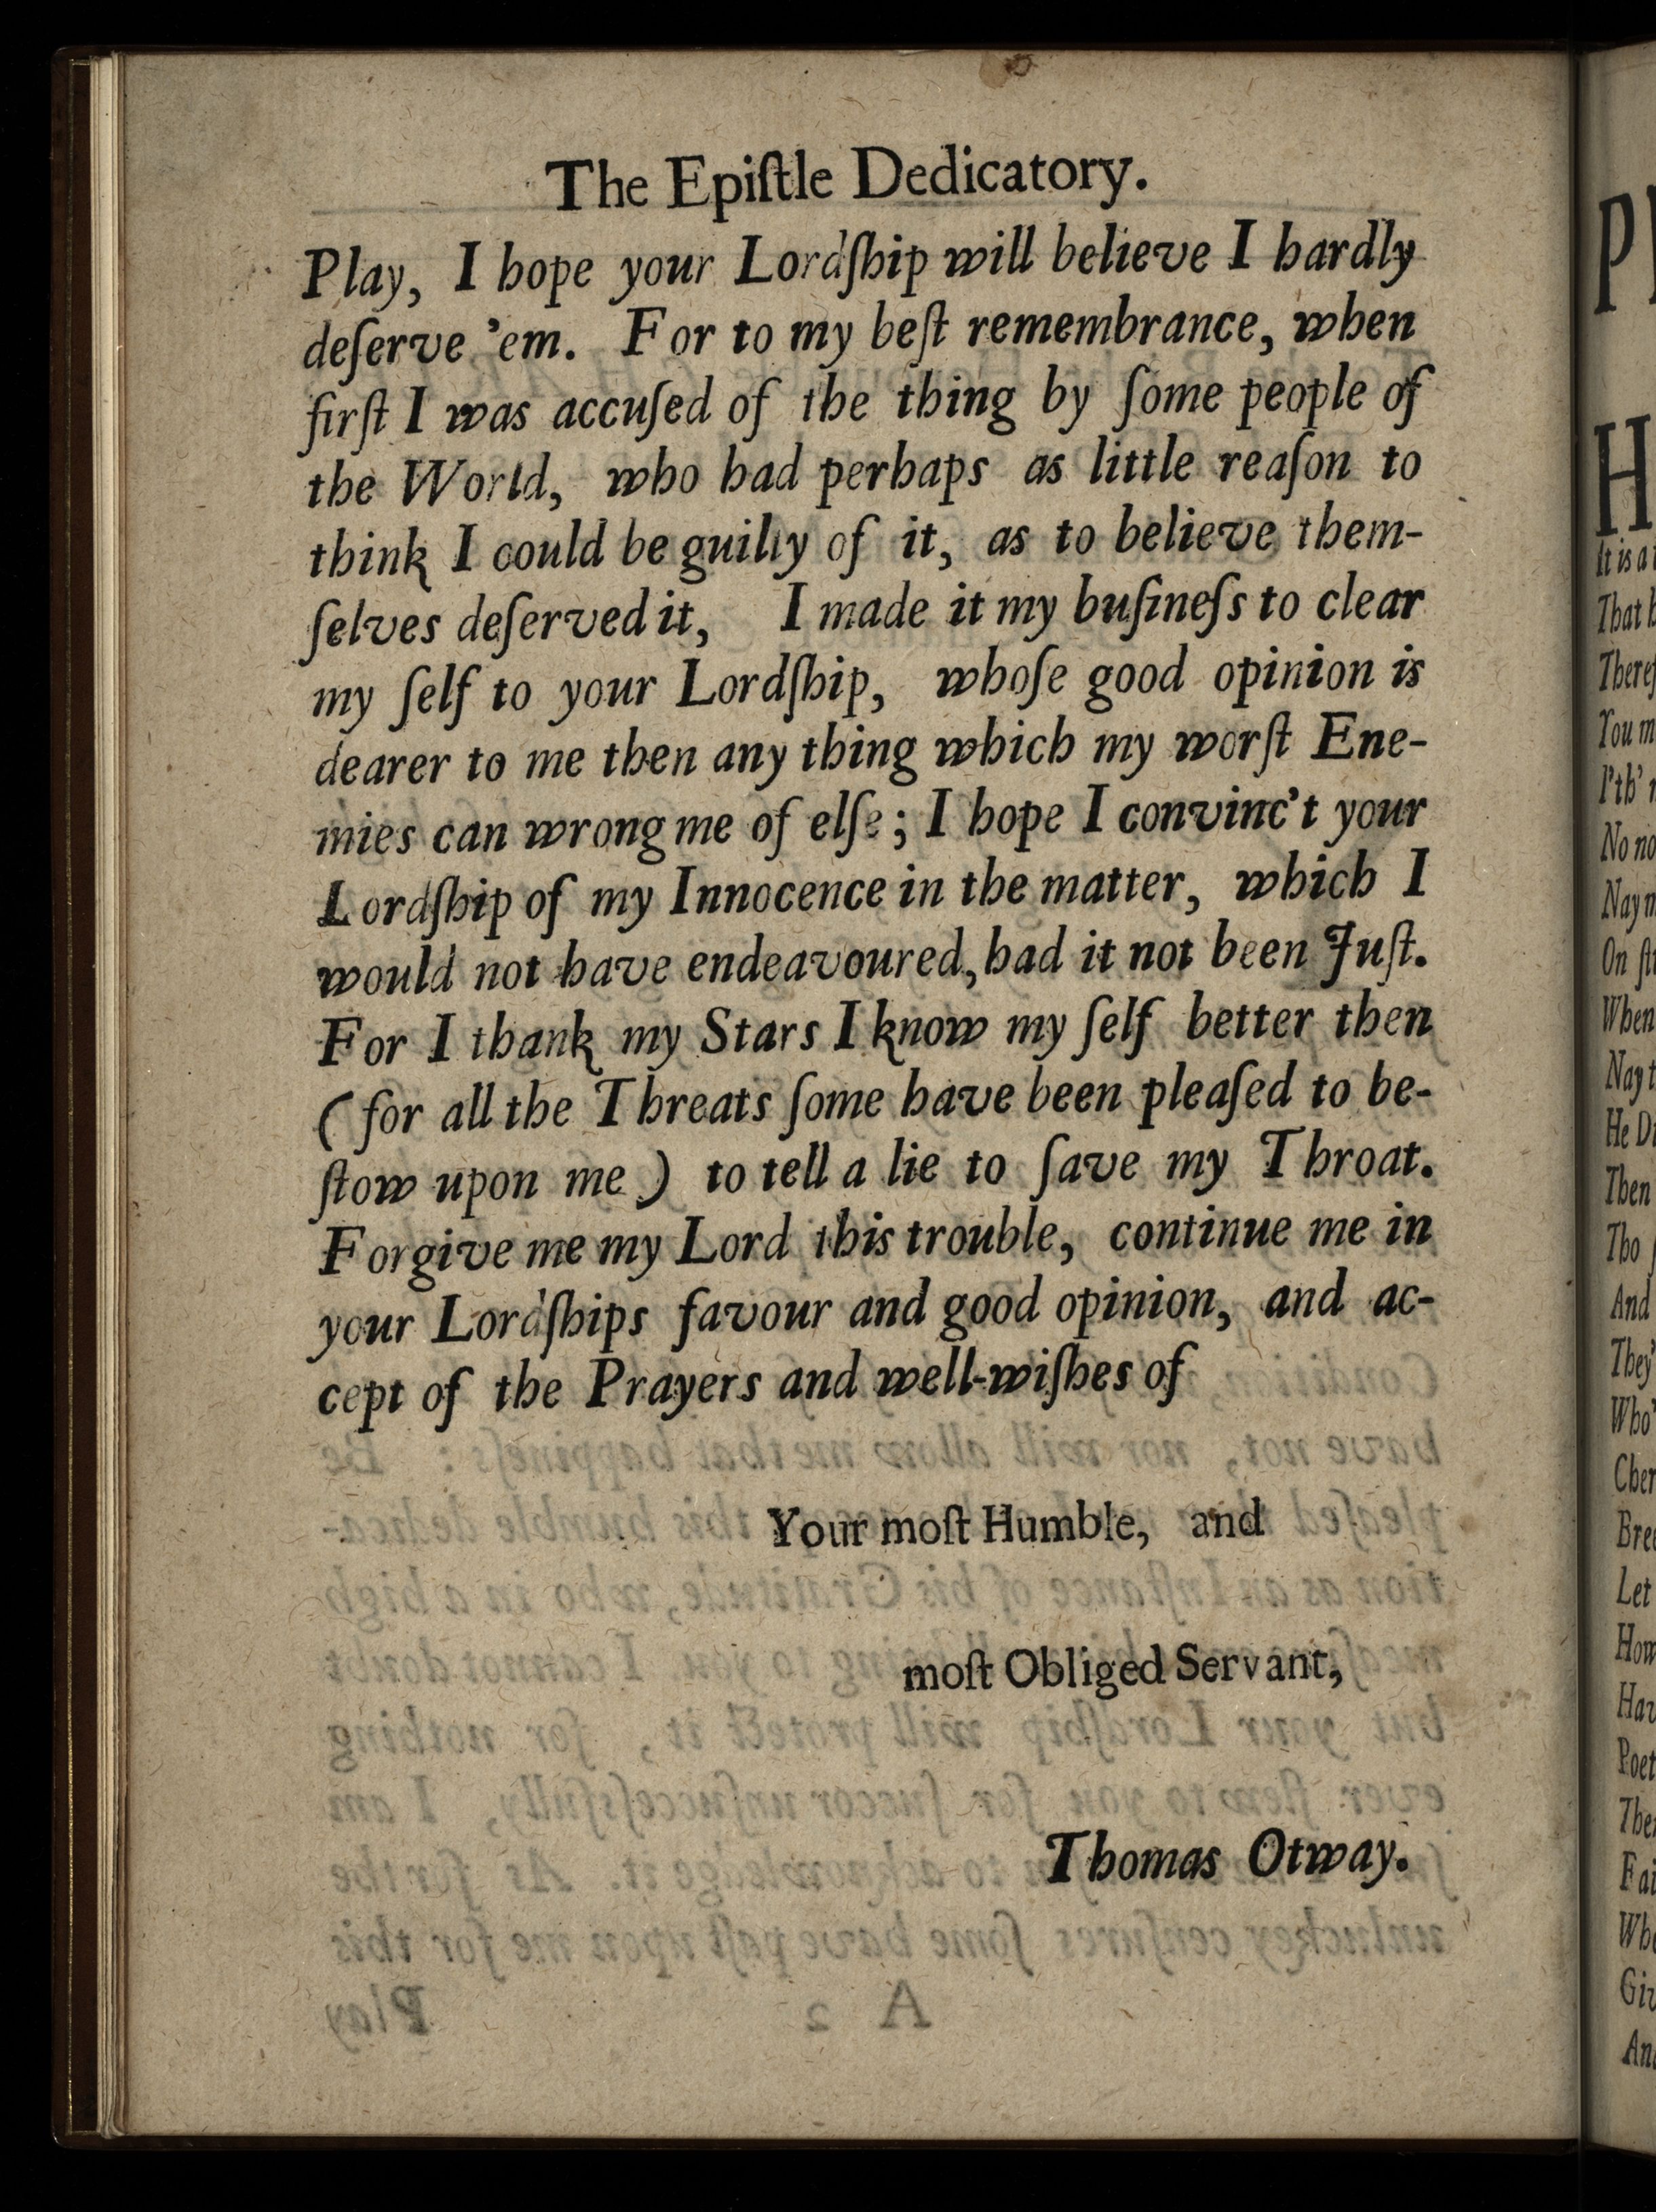 The Epiſtle Dedicatory.
Play, I hope your Lordſhip will believe I hardly
deſerve 'em. For to my beſt remembrance, when
firſt I was accuſed of the thing by ſome people of
the World, who had perhaps as little reaſon to
think I could be guilty of it, as to believe them-
ſelves deſerved it, I made it my buſineſs to clear
my ſelf to your Lordſhip, whoſe good opinion is
dearer to me then any thing which my worſt Ene-
mies can wrong me of elſe; I hope I convinc't your
Lordſhip of my Innocence in the matter, which I
would not have endeavoured, had it not been Juſt.
For I thank my Stars I know my ſelf better then
(for all the Threats ſome have been pleaſed to be-
ſtow upon me) to tell a lie to ſave my Throat.
Forgive me my Lord this trouble, continue me in
your Lordſhips favour and good opinion, and ac-
cept of the Prayers and well-wiſhes of
Your moſt Humble, and
moſt Obliged Servant,
Thomas Otway.
H
It is a
That
You m
I'th'
No no
Nay
On
When
Nay
He
Then
Tho
And
They'
Who'
Let
How